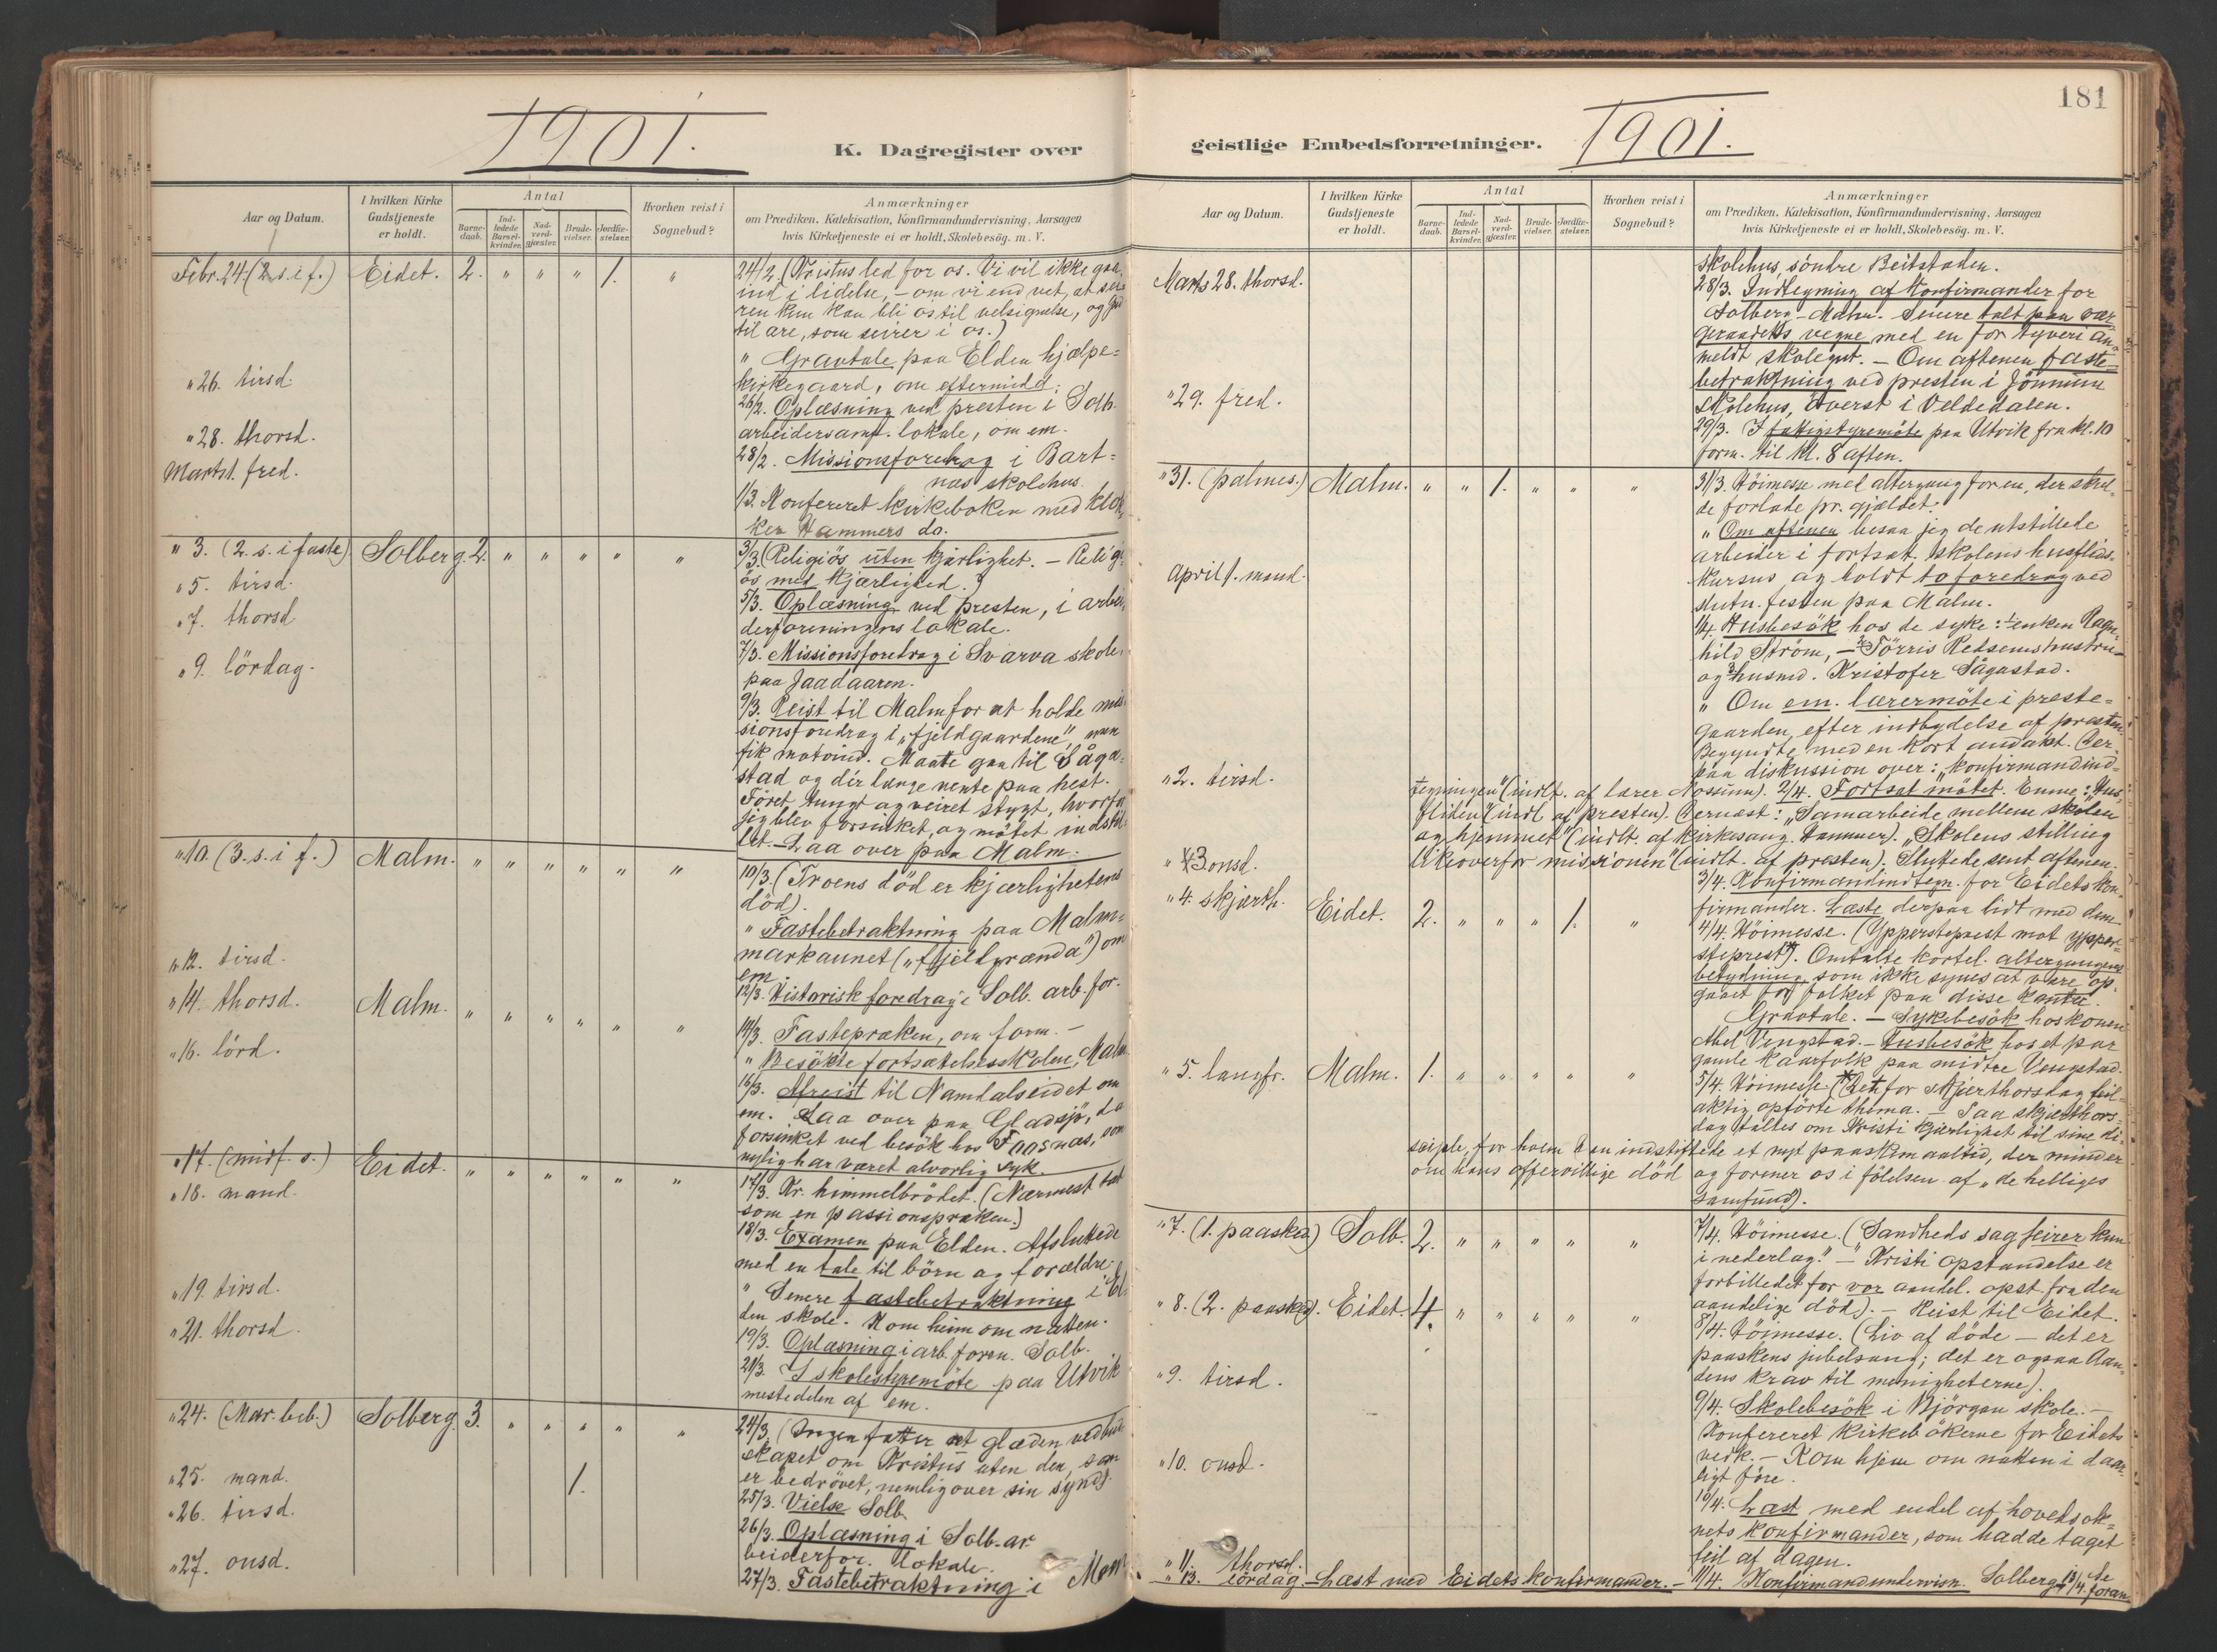 1901.
K. Dagregister over
Aar og Datum.
I hvilken Kirke Gudstjeneste er holdt.
Antal
Barne-daab.
Ind-ledede Barsel-kvinder.
Nad-verd-gjæster.
Brude-vielser.
Jordfæ-stelser.
Hvorhen reist i Sognebud?
Anmærkninger
om Prædiken, Katekisation, Konfirmandundervisning, Aarsagen
hvis Kirketjeneste ei er holdt, Skolebesög. m. V.
Febr. 24 (2. s. i f.) Eidet. 2. " " " 1. "
24/2. (Kristus led for os. Vi vil ikke gaa
ind i lidelse, – om vi end vet, at
ren kun kan bli os til velsignelse, og
til ære, som seirer i os.)
" Gravtale paa Elden hjælpe=
kirkegaard, om eftermidd.
" 26. tirsd.
26/2. Oplæsning ved presten i Solb.
arbeidersamf. lokale, om em.
" 28. thorsd.
28/2. Missionsforedrag i Bart=
næs skolehus.
Marts 1. fred.
1/3. Konfereret kirkeboken med klok
ker Hammers do.
" 3. (2. s. i faste) Solberg. 2. " " " " "
3/3. (Religiös uten kjærlighet. – Religi
ös med kjærlighed.)
" 5. tirsd.
5/3. Oplæsning ved presten, i arbei
derforeningens lokale.
" 7. thorsd
7/3. Missionsforedrag i Svarva skole
paa Jaadaaren.
" 9. lördag.
9/3. Reist til Malm for at holde mis
sionsforedrag i "fjeldgaardene", men
fik motvind. Maate gaa til Såga=
stad og dér længe vente paa hest.
Föret tungt og veiret stygt, hvorfor
jeg blev forsinket, og mötet indstil
let. – Laa over paa Malm.
" 10. (3. s. i f.) Malm. " " " " " "
10/3. (Troens död er kjærlighetens
död).
" Fastebetraktning paa Malm=
markaunet ("fjeldgrænda") om
em.
" 12. tirsd.
12/3. Historisk foredrag i Solb. arb. for.
" 14. thorsd. Malm. " " " " " "
14/3. Fastepræken, om form. –
" Besökte fortsættelsesskolen, Malm
" 16. lörd.
16/3. Afreist til Namdalseidet om
em. Laa over paa Gladsjö, da
forsinket ved besök hos Faasnæs, som
nylig har været alvorlig syk.
" 17. (midf. s.) Eidet. " " " " " "
17/3. Kr. himmelbrödet. (Nærmest
som en passionspræken.)
" 18. mand.
18/3. Examen paa Elden. Afsluttede
med en tale til börn og forældre.
" Senere fastebetraktning i El
den skole. Kom heim om natten.
" 19. tirsd.
19/3. Oplæsning i arb. foren. Solb.
" 21. thorsd.
21/3. I skolestyremöte paa Utvik
mestedelen af em.
" 24. (Mar. beb.) Solberg. 3. " " " " "
24/3. (Ingen fatter ret glæden ved bud
skapet om Kristus uten den, som
er bedrövet, nemlig over sin synd)
" 25. mand. 1.
25/3. Vielse Solb.
" 26. tirsd.
26/3. Oplæsning i Solb. ar
beiderfor. lokale.
" 27. onsd.
27/3. Fastebetraktning i
181
geistlige Embedsforretninger.
1901.
Aar og Datum.
I hvilken Kirke Gudstjeneste er holdt.
Antal
Barne-daab.
Ind-ledede Barsel-kvinder.
Nad-verd-gjæster.
Brude-vielser.
Jordfæ-stelser.
Hvorhen reist i Sognebud?
Anmærkninger
om Prædiken, Katekisation, Konfirmandundervisning, Aarsagen
hvis Kirketjeneste ei er holdt, Skolebesög. m. V.
skolehus, söndre Beitstaden.
Marts 28. thorsd.
28/3. Indtegning af Konfirmander for
Solberg – Malm. Senere talt paa vær=
geraadets vegne med en for tyveri an=
meldt skolegut. – Om aftenen faste=
betraktning ved presten i
skolehus, överst i Veldedalen.
" 29. fred.
29/3. I fattigstyremöte paa Utvik fra kl. 10
form. til kl. 8 aften.
" 31. (palmes.) Malm. " " 1. " " "
31/3. Höimesse med altergang for en, der skul=
de forlade pr.gjældet.
" Om aftenen besaa jeg de utstillede
arbeider i fortsat. skolens husflids=
kursus og holdt to foredrag ved
slutn.festen paa Malm.
April 1. mand.
1/4. Husbesök hos de syke: 1 enken Ragn=
hild Ström, – 2 Törris Redsems hustru
og 3 husmd. Kristofer Sågastad.
" Om em. lærermöte i preste=
gaarden, efter indbydelse af presten.
Begyndte med en kort andakt. Der=
paa diskussion over: "Konfirmandind=
tegningen" (indl. af lærer Fossum). 2/4. Fortsat mötet. Emne: "Hus=
" 2. tirsd.
fliden" (indl. af presten). Dernæst: "Samarbeide mellem skolen
og hjemmet" (indl. af kirkesang. Hammer). "Skolens stilling
likeoverfor missionen" (indl. af presten). Sluttede sent aftenen.
" 3 onsd.
3/4. Konfirmandindtegn. for Eidets kon=
firmander. Læste derpaa lidt med dem
" 4. skjærth. Eidet. 2. " " " 1. "
4/4. Höimesse. (Yppersteprest mot ypper=
steprest). Omtalte kortel. altergangens
betydning, som ikke synes at være op=
gaaet for folket paa disse kanter.
Gravtale. – Sykebesök hos konen
Abel Vengstad. – Husbesök hos et par
gamle kaarfolk paa midtre Vengstad.
" 5. langfr. Malm. 1. " " " " "
5/4. Höimesse. (Det for Skjærthorsdag feil=
aktig opförte thema. – Paa skjærthors=
dag taltes om Kristi kjærlighet til sine di=
sciple, for hvem han indstiftede et nyt paaskemaaltid, der minder
om hans offervillige död og forener os i fölelsen af "de helliges
samfund).
" 7. (1. paasked) Solb. 2. " " " " "
7/4. Höimesse. ("Sandheds sag seirer kun
i nederlag." – "Kristi opstandelse er
forbilledet for vor aandel. opst. fra den
aandelige död). – Reist til Eidet.
" 8. (2. paasked). Eidet. 4. " " " " "
8/4. Höimesse. (Liv af döde – det er
paaskens jubelsang; det er ogsaa Aan=
dens krav til menigheterne).
" 9. tirsd.
9/4. Skolebesök i Björgan skole. –
Konfereret kirkebökerne for Eidets
verk. – Kom hjem om natten i daar=
ligt före.
" 10. onsd.
10/4. Læst med endel af hovedsok=
nets konfirmander, som hadde taget
feil af dagen.
" 11. thorsd. 11/4. Konfirmandundervisn. Solberg
" 13. lördag Læst med Eidets konfirmander. – 13/4.